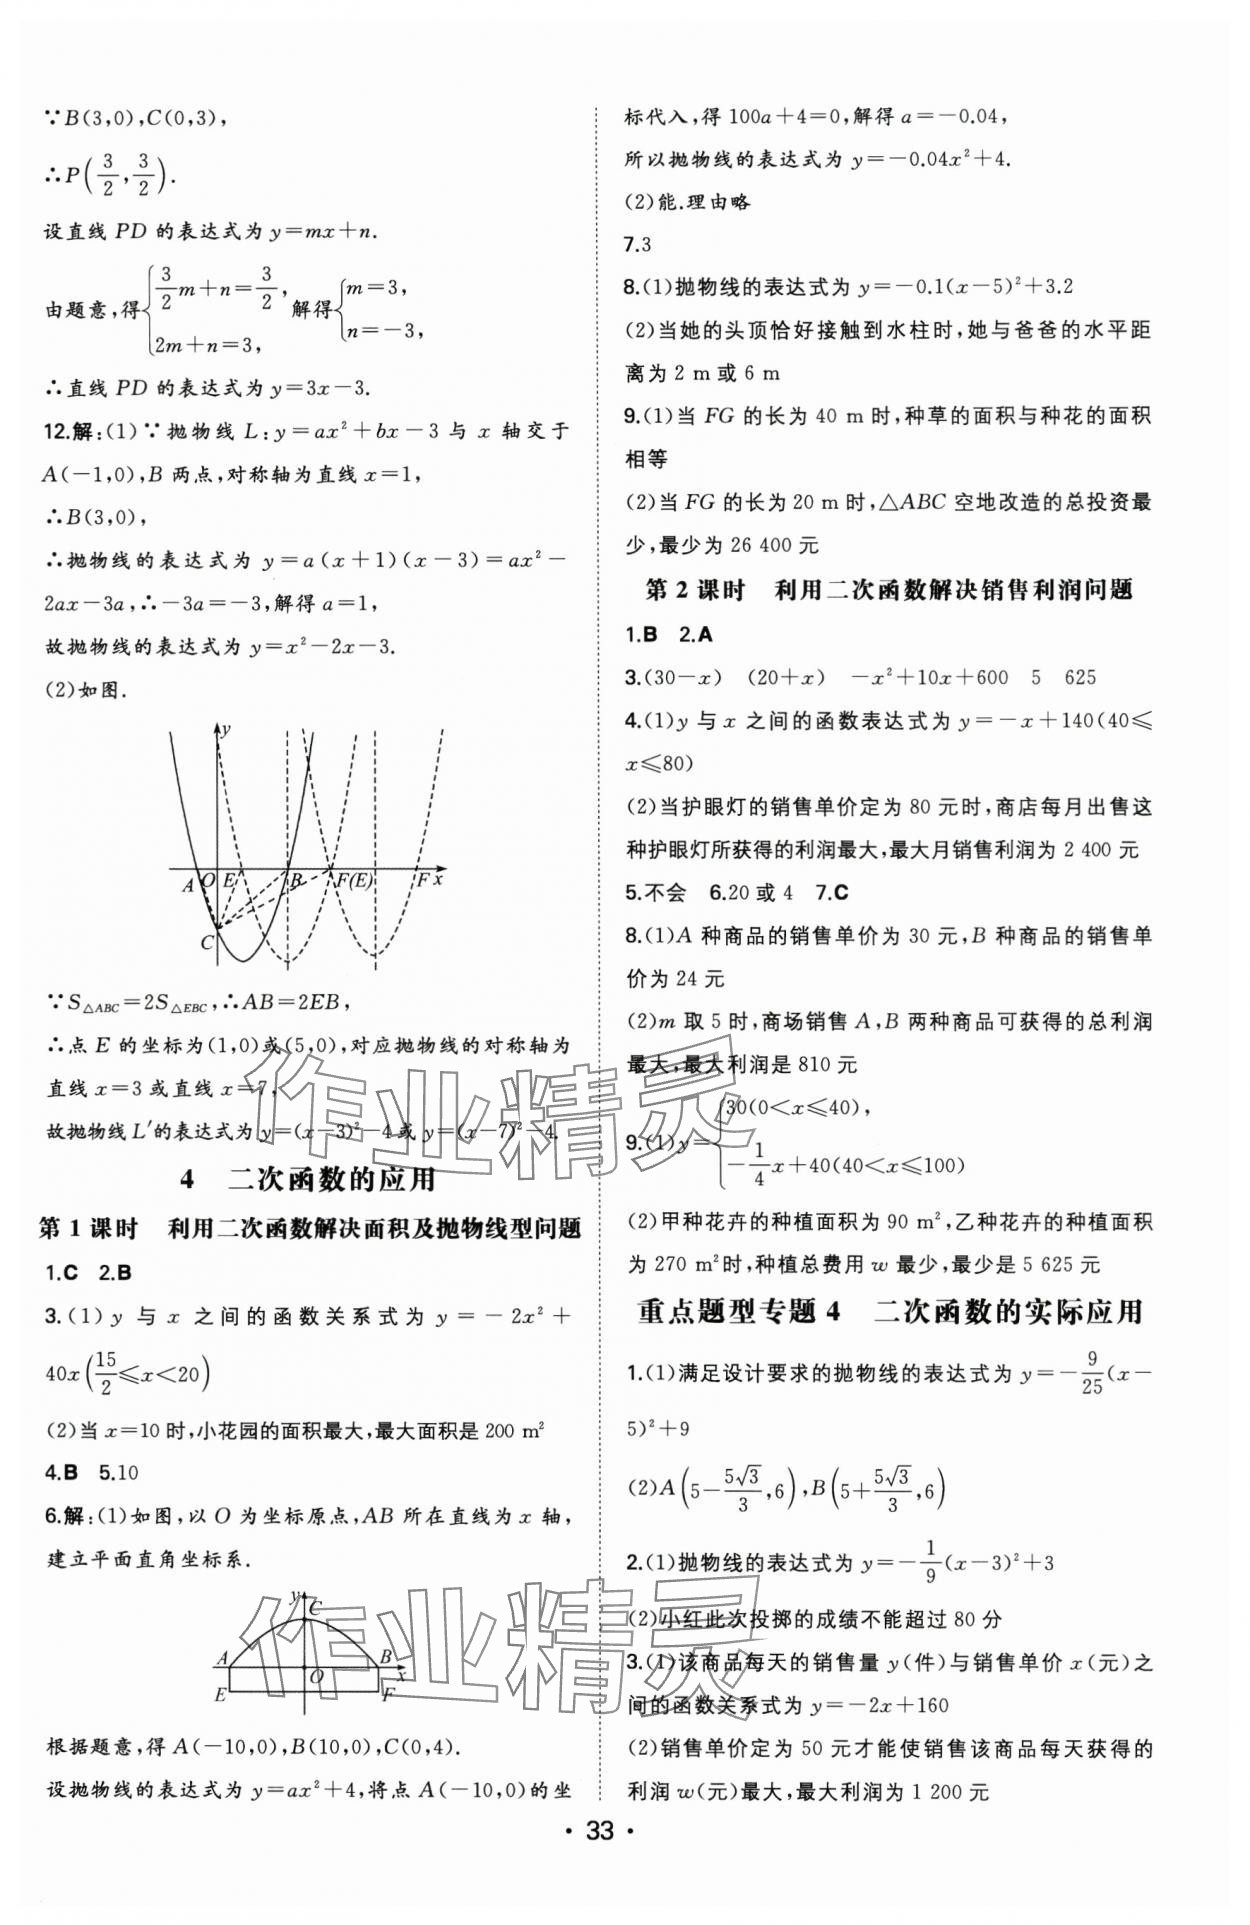 ∵B(3,0),C(0,3),
∴P(3/2,3/2).
设直线 PD 的表达式为 y=mx+n.
由题意,得{3/2m+n=3/2, 2m+n=3, 解得{m=3, n=-3,
∴直线 PD 的表达式为 y=3x-3.
12.解:(1)∵抛物线 L:y=ax²+bx-3 与 x 轴交于
A(-1,0),B 两点,对称轴为直线 x=1,
∴B(3,0),
∴抛物线的表达式为 y=a(x+1)(x-3)=ax²-
2ax-3a,∴-3a=-3,解得 a=1,
故抛物线的表达式为 y=x²-2x-3.
(2)如图.
y
A O E B F(E) F x
C
∵S△ABC=2S△EBC,∴AB=2EB,
∴点 E 的坐标为(1,0)或(5,0),对应抛物线的对称轴为
直线 x=3 或直线 x=7,
故抛物线L′的表达式为 y=(x-3)²-4 或 y=(x-7)²-4.
4 二次函数的应用
第 1 课时 利用二次函数解决面积及抛物线型问题
1.C 2.B
3.(1)y 与 x 之间的函数关系式为 y=-2x²+
40x(15/2≤x<20)
(2)当 x=10 时,小花园的面积最大,最大面积是 200 m²
4.B 5.10
6.解:(1)如图,以 O 为坐标原点,AB 所在直线为 x 轴,
建立平面直角坐标系.
y
C
A B
O x
E F
根据题意,得 A(-10,0),B(10,0),C(0,4).
设抛物线的表达式为 y=ax²+4,将点 A(-10,0)的坐
标代入,得 100a+4=0,解得 a=-0.04,
所以抛物线的表达式为 y=-0.04x²+4.
(2)能.理由略
7.3
8.(1)抛物线的表达式为 y=-0.1(x-5)²+3.2
(2)当她的头顶恰好接触到水柱时,她与爸爸的水平距
离为 2 m 或 6 m
9.(1)当 FG 的长为 40 m 时,种草的面积与种花的面积
相等
(2)当 FG 的长为 20 m 时,△ABC 空地改造的总投资最
少,最少为 26 400 元
第 2 课时 利用二次函数解决销售利润问题
1.B 2.A
3.(30-x) (20+x) -x²+10x+600 5 625
4.(1)y 与 x 之间的函数表达式为 y=-x+140(40≤
x≤80)
(2)当护眼灯的销售单价定为 80 元时,商店每月出售这
种护眼灯所获得的利润最大,最大月销售利润为 2 400 元
5.不会 6.20 或 4 7.C
8.(1)A 种商品的销售单价为 30 元,B 种商品的销售单
价为 24 元
(2)m 取 5 时,商场销售 A,B 两种商品可获得的总利润
最大,最大利润是 810 元
9.(1)y={30(0<x≤40), -1/4x+40(40<x≤100)
(2)甲种花卉的种植面积为 90 m²,乙种花卉的种植面积
为 270 m²时,种植总费用 w 最少,最少是 5 625 元
重点题型专题 4 二次函数的实际应用
1.(1)满足设计要求的抛物线的表达式为 y=-9/25(x-
5)²+9
(2)A(5-5√3/3,6),B(5+5√3/3,6)
2.(1)抛物线的表达式为 y=-1/9(x-3)²+3
(2)小红此次投掷的成绩不能超过 80 分
3.(1)该商品每天的销售量 y(件)与销售单价 x(元)之
间的函数关系式为 y=-2x+160
(2)销售单价定为 50 元才能使销售该商品每天获得的
利润 w(元)最大,最大利润为 1 200 元
• 33 •
作业精灵
作业精灵